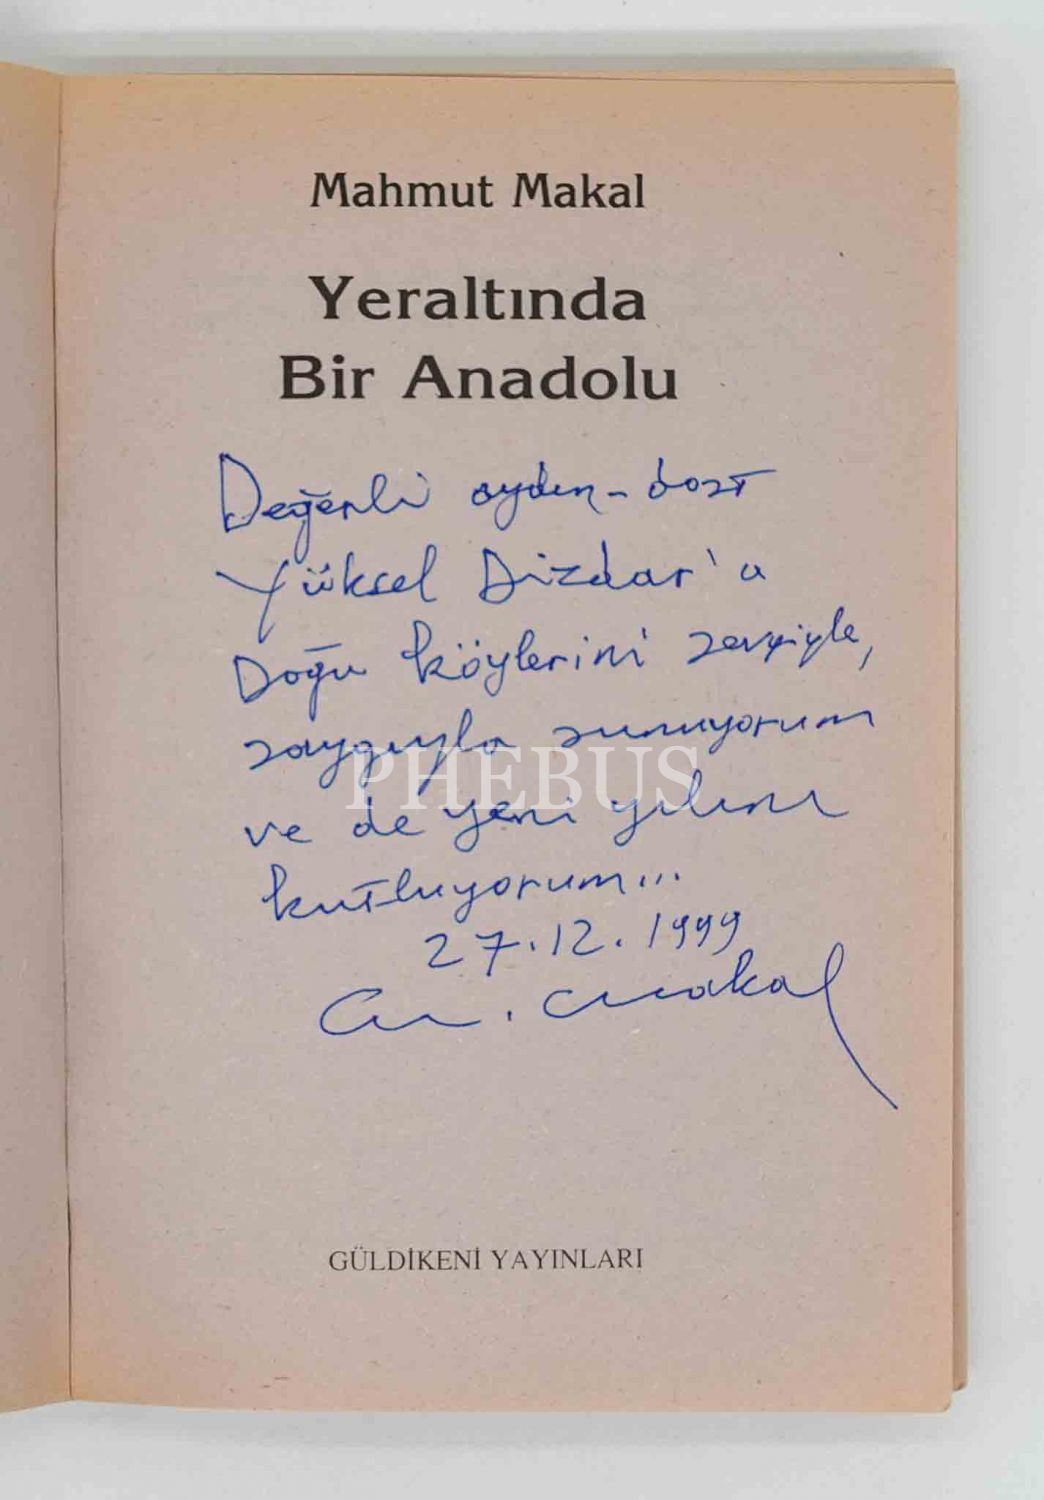 Mahmut Makal
Yeraltında
Bir Anadolu
Değerli aydın-dost
Yüksel Dizdar'a
Doğu köylerini sevgiyle,
saygıyla sunuyorum
PHEBUS
ve de yeni yılını
kutluyorum...
27.12.1999
M. Makal
GÜLDİKENİ YAYINLARI